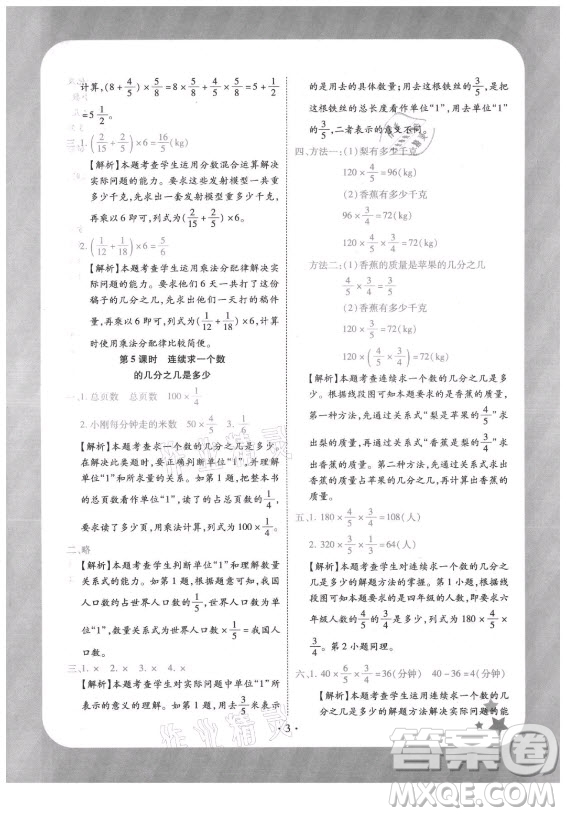 计算,(8+4/5)×5/8=8×5/8+4/5×5/8=5+1/2
=5 1/2
三、1.(2/15+4/5)×6=16/(kg)
【解析】本题考查学生运用分数混合运算解决
实际问题的能力。要求这些发射模型一共重
多少千克,先求出一套发射模型重多少千克,
再乘以6即可,列式为(2/15+4/5)×6。
2.(1/12+1/18)×6=5/6
【解析】本题考查学生运用乘法分配律解决实
际问题的能力。要求他们6天一共打了这份
稿子的几分之几,先求出他们1天打的稿件
量,再乘以6即可,列式为(1/12+1/18)×6,计算
时使用乘法分配律比较简便。
第5课时 连续求一个数
的几分之几是多少
一、1.总页数 总页数 100×1/4
2.小刚每分钟走的米数 50×4/5 3.1/6
【解析】本题考查求一个数的几分之几是多少。
在解决此类题时,要正确判断单位“1”,并理解
单位“1”的意义。如第1题,根据题意,把整本书
的总页数看作单位“1”,读了的占总页数的1/4,
要求读了多少页,用乘法计算,列式为100×1/4。
二、略
【解析】本题考查学生判断单位“1”和理解数量
关系式的能力。如第1题,根据“我国
人口数约占世界人口数的1/5”,世界人口数为单位
“1”,数量关系式为世界人口数×1/5=我国人口数。
三、1.× 2.× 3.× 4.×
【解析】本题考查学生对实际问题中单位“1”所
表示的意义的理解。如第1题,用去3/5米表示
的是用去的具体数量;用去这根铁丝的3/5,是把
这根铁丝的总长度看作单位“1”,用去单位“1”
的3/5,二者表示的意义不同。
四、方法一:(1)梨有多少千克
120×4/5=96(kg)
(2)香蕉有多少千克
96×3/4=72(kg)
120×4/5×3/4=72(kg)
方法二:(1)香蕉的质量是苹果的几分之几
4/5×3/4=3/5
(2)香蕉有多少千克
120×3/5=72(kg)
120×(4/5×3/4)=72(kg)
【解析】本题考查连续求一个数的几分之几是多
少。第一种方法,先通过关系式“梨是苹果的4/5”求
出梨的质量,再通过关系式“香蕉是梨的3/4”求出
香蕉的质量。第二种方法,先通过关系式求出香
蕉的质量占苹果质量的几分之几,再求香蕉的
质量。
五、1.180×4/5×3/4=108(人)
2.320×3/5×1/3=64(人)
【解析】本题考查学生对连续求一个数的几分
之几是多少的解题方法的掌握。第1小题,根据
线段图可知要求的是四年级的人数,即要求六
年级人数的4/5的3/4。第2小题同理。
六、1.40×6/5×3/4=36(分钟) 40-36=4(分钟)
【解析】本题考查学生运用连续求一个数的几分
之几是多少的解题方法解决实际问题的能
·3·
作业精灵
作业精灵
答案圈
MXQE.COM